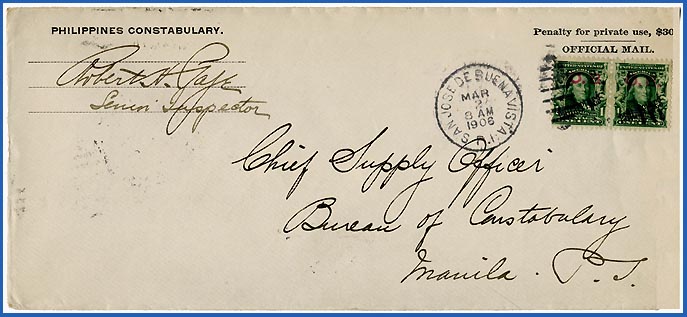 PHILIPPINES CONSTABULARY.
Penalty for private use, $30
OFFICIAL MAIL.
Robert H.
Senior Inspector
SAN JOSE DE BUENAVISTA
MAR
2
8 AM
1906
Chief Supply Officer
Bureau of Constabulary
Manila. P. I.